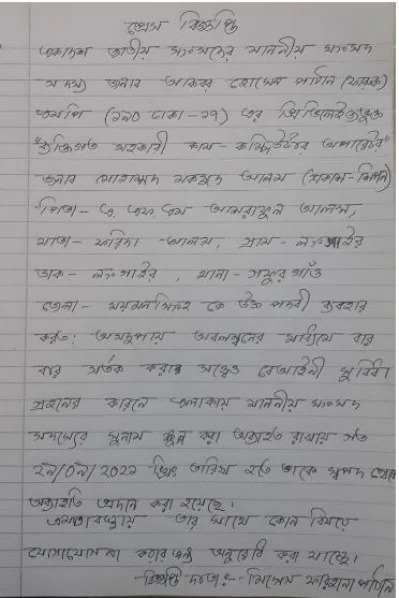 প্রেস বিজ্ঞপ্তি
একাদশ জাতীয় সংসদের মাননীয় সংসদ
সদস্য জনাব আকবর হোসেন পাঠান (ফারুক)
এমপি (১৯০ ঢাকা-১৭) এর প্রিভিলেইজভুক্ত
"ব্যক্তিগত সহকারী কাম-কম্পিউটার অপারেটর"
জনাব মোহাম্মদ মকছুদ আলম (প্রকাশ-লিপন)
পিতা- এ, এফ, এম আমরাফুল আলম,
মাতা- ফরিদা আলম, গ্রাম- লংগাইর
ডাক- লংগাইর, থানা- গফরগাঁও
জেলা- ময়মনসিংহ কে উক্ত পদবী ব্যবহার
করত: অসদুপায় অবলম্বনের মাধ্যমে বার
বার সর্তক করার সত্ত্বেও বেআইনী সুবিধা
গ্রহনের কারনে এলাকায় মাননীয় সংসদ
সদস্যের সুনাম ক্ষুন্ন করা অব্যাহত রাখায় গত
২৯/০৯/২০২১ তারিখ হতে তাকে স্বপদ থেকে
অব্যাহতি প্রদান করা হয়েছে।
এমতাবস্থায় তার সাথে কোন বিষয়ে
যোগাযোগ না করার জন্য অনুরোধ করা যাচ্ছে।
-বিজ্ঞপ্তি দাতা:- মিসেস ফারহানা পাঠান